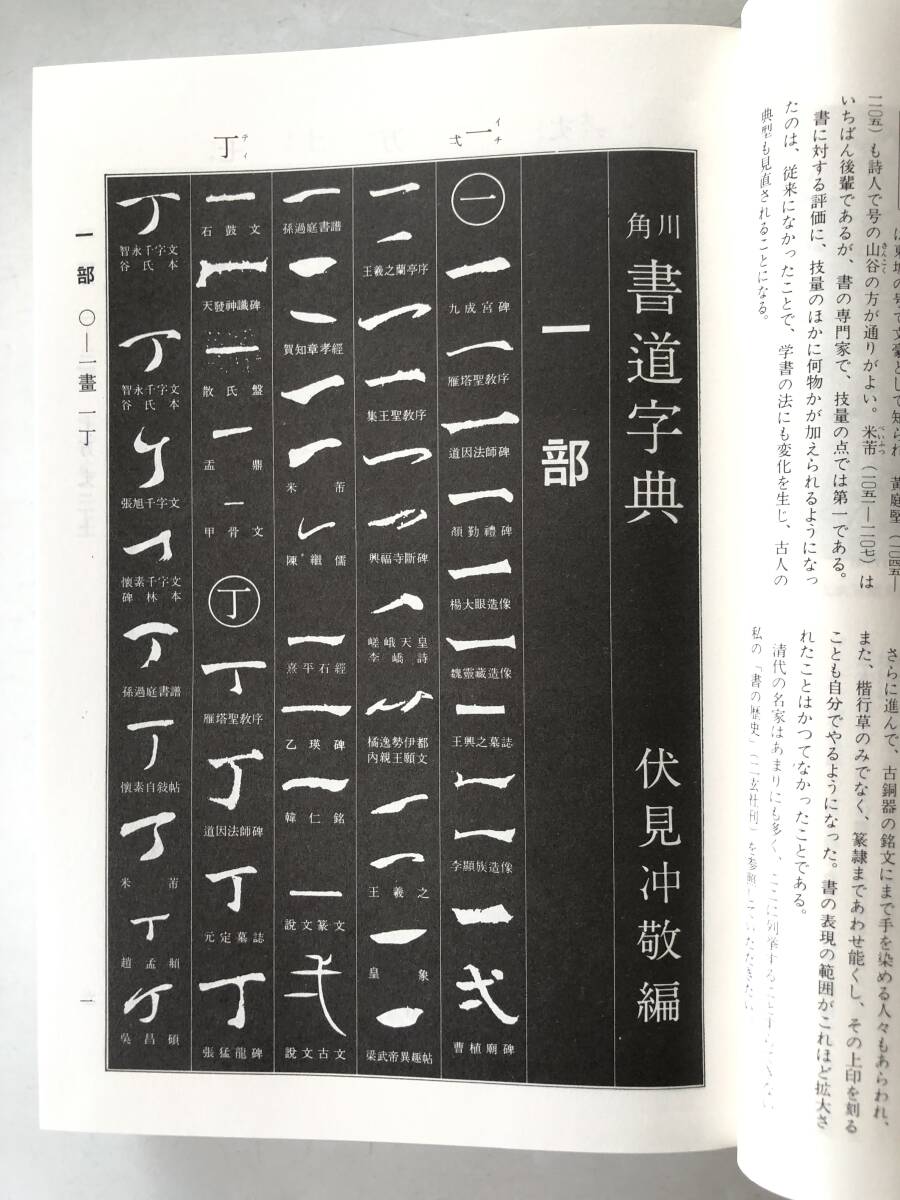 二〇五）も詩人で号の山谷の方が通りがよい。米芾（一〇五一―一一〇七）は
いちばん後輩であるが、書の専門家で、技量の点では第一である。
書に対する評価に、技量のほかに何物かが加えられるようになっ
たのは、従来になかったことで、学書の法にも変化を生じ、古人の
典型も見直されることになる。
さらに進んで、古銅器の銘文にまで手を染める人々もあらわれ、
また、楷行草のみでなく、篆隷まであわせ能くし、その上印を刻る
ことも自分でやるようになった。書の表現の範囲がこれほど拡大さ
れたことはかつてなかったことである。
清代の名家はあまりにも多く、ここに列挙することすらできない
私の「書の歴史」（二玄社刊）を参照していただきたい
一 イチ
弌
丁 テイ
角川 書道字典 伏見冲敬編
一部
一
九成宮碑
雁塔聖教序
道因法師碑
顏勤禮碑
楊大眼造像
魏靈藏造像
王興之墓誌
李顯族造像
曹植廟碑
王羲之蘭亭序
集王聖教序
興福寺斷碑
嵯峨天皇
李嶠詩
橘逸勢伊都
内親王願文
王羲之
皇象
梁武帝異趣帖
孫過庭書譜
賀知章孝經
米芾
陳繼儒
熹平石經
乙瑛碑
韓仁銘
說文篆文
說文古文
石鼓文
天發神讖碑
散氏盤
盂鼎
甲骨文
丁
雁塔聖教序
道因法師碑
元定墓誌
張猛龍碑
智永千字文
谷氏本
智永千字文
谷氏本
張旭千字文
懷素千字文
碑林本
孫過庭書譜
懷素自敍帖
米芾
趙孟頫
吳昌碩
一部 〇―一畫 一丁
一